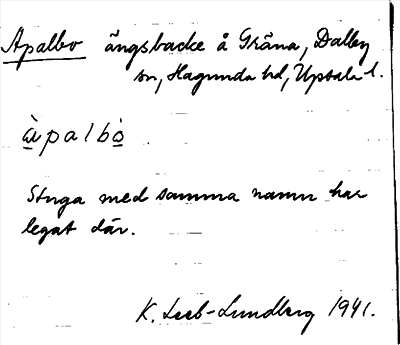 Apalbo ängsbacke å Gräna, Dalby
sn, Hagunda hd, Uppsala l.
àpalbò
Stuga med samma namn har
legat där.
K. Leeb-Lundberg 1941.